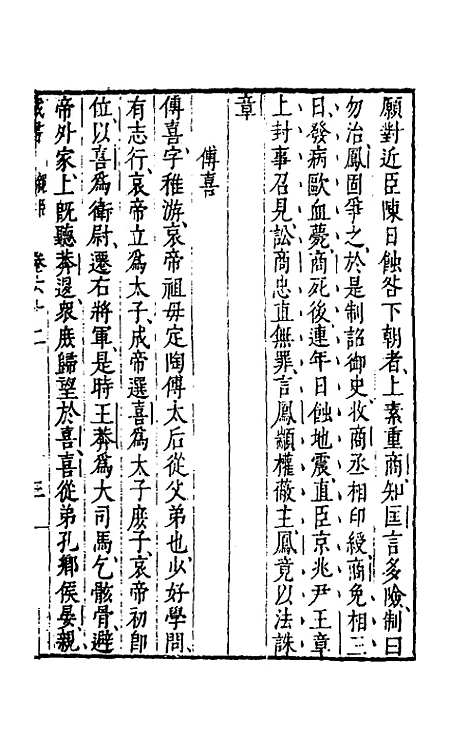 願對近臣陳日蝕咎下朝者上素重商知匡言多險制曰
勿治鳳固爭之於是制詔御史收商丞相印綬商免相三
日發病歐血薨商死後連年日蝕地震直臣京兆尹王章
上封事召見訟商忠直無罪言鳳顓權蔽主鳳竟以法誅
章
傅喜
傅喜字稚游哀帝祖母定陶傅太后從父弟也少好學問
有志行哀帝立爲太子成帝選喜爲太子庶子哀帝初卽
位以喜爲衛尉遷右將軍是時王莽爲大司馬乞骸骨避
帝外家上旣聽莽退衆庶歸望於喜喜從弟孔鄉侯晏親
藏書 卷六十二 三